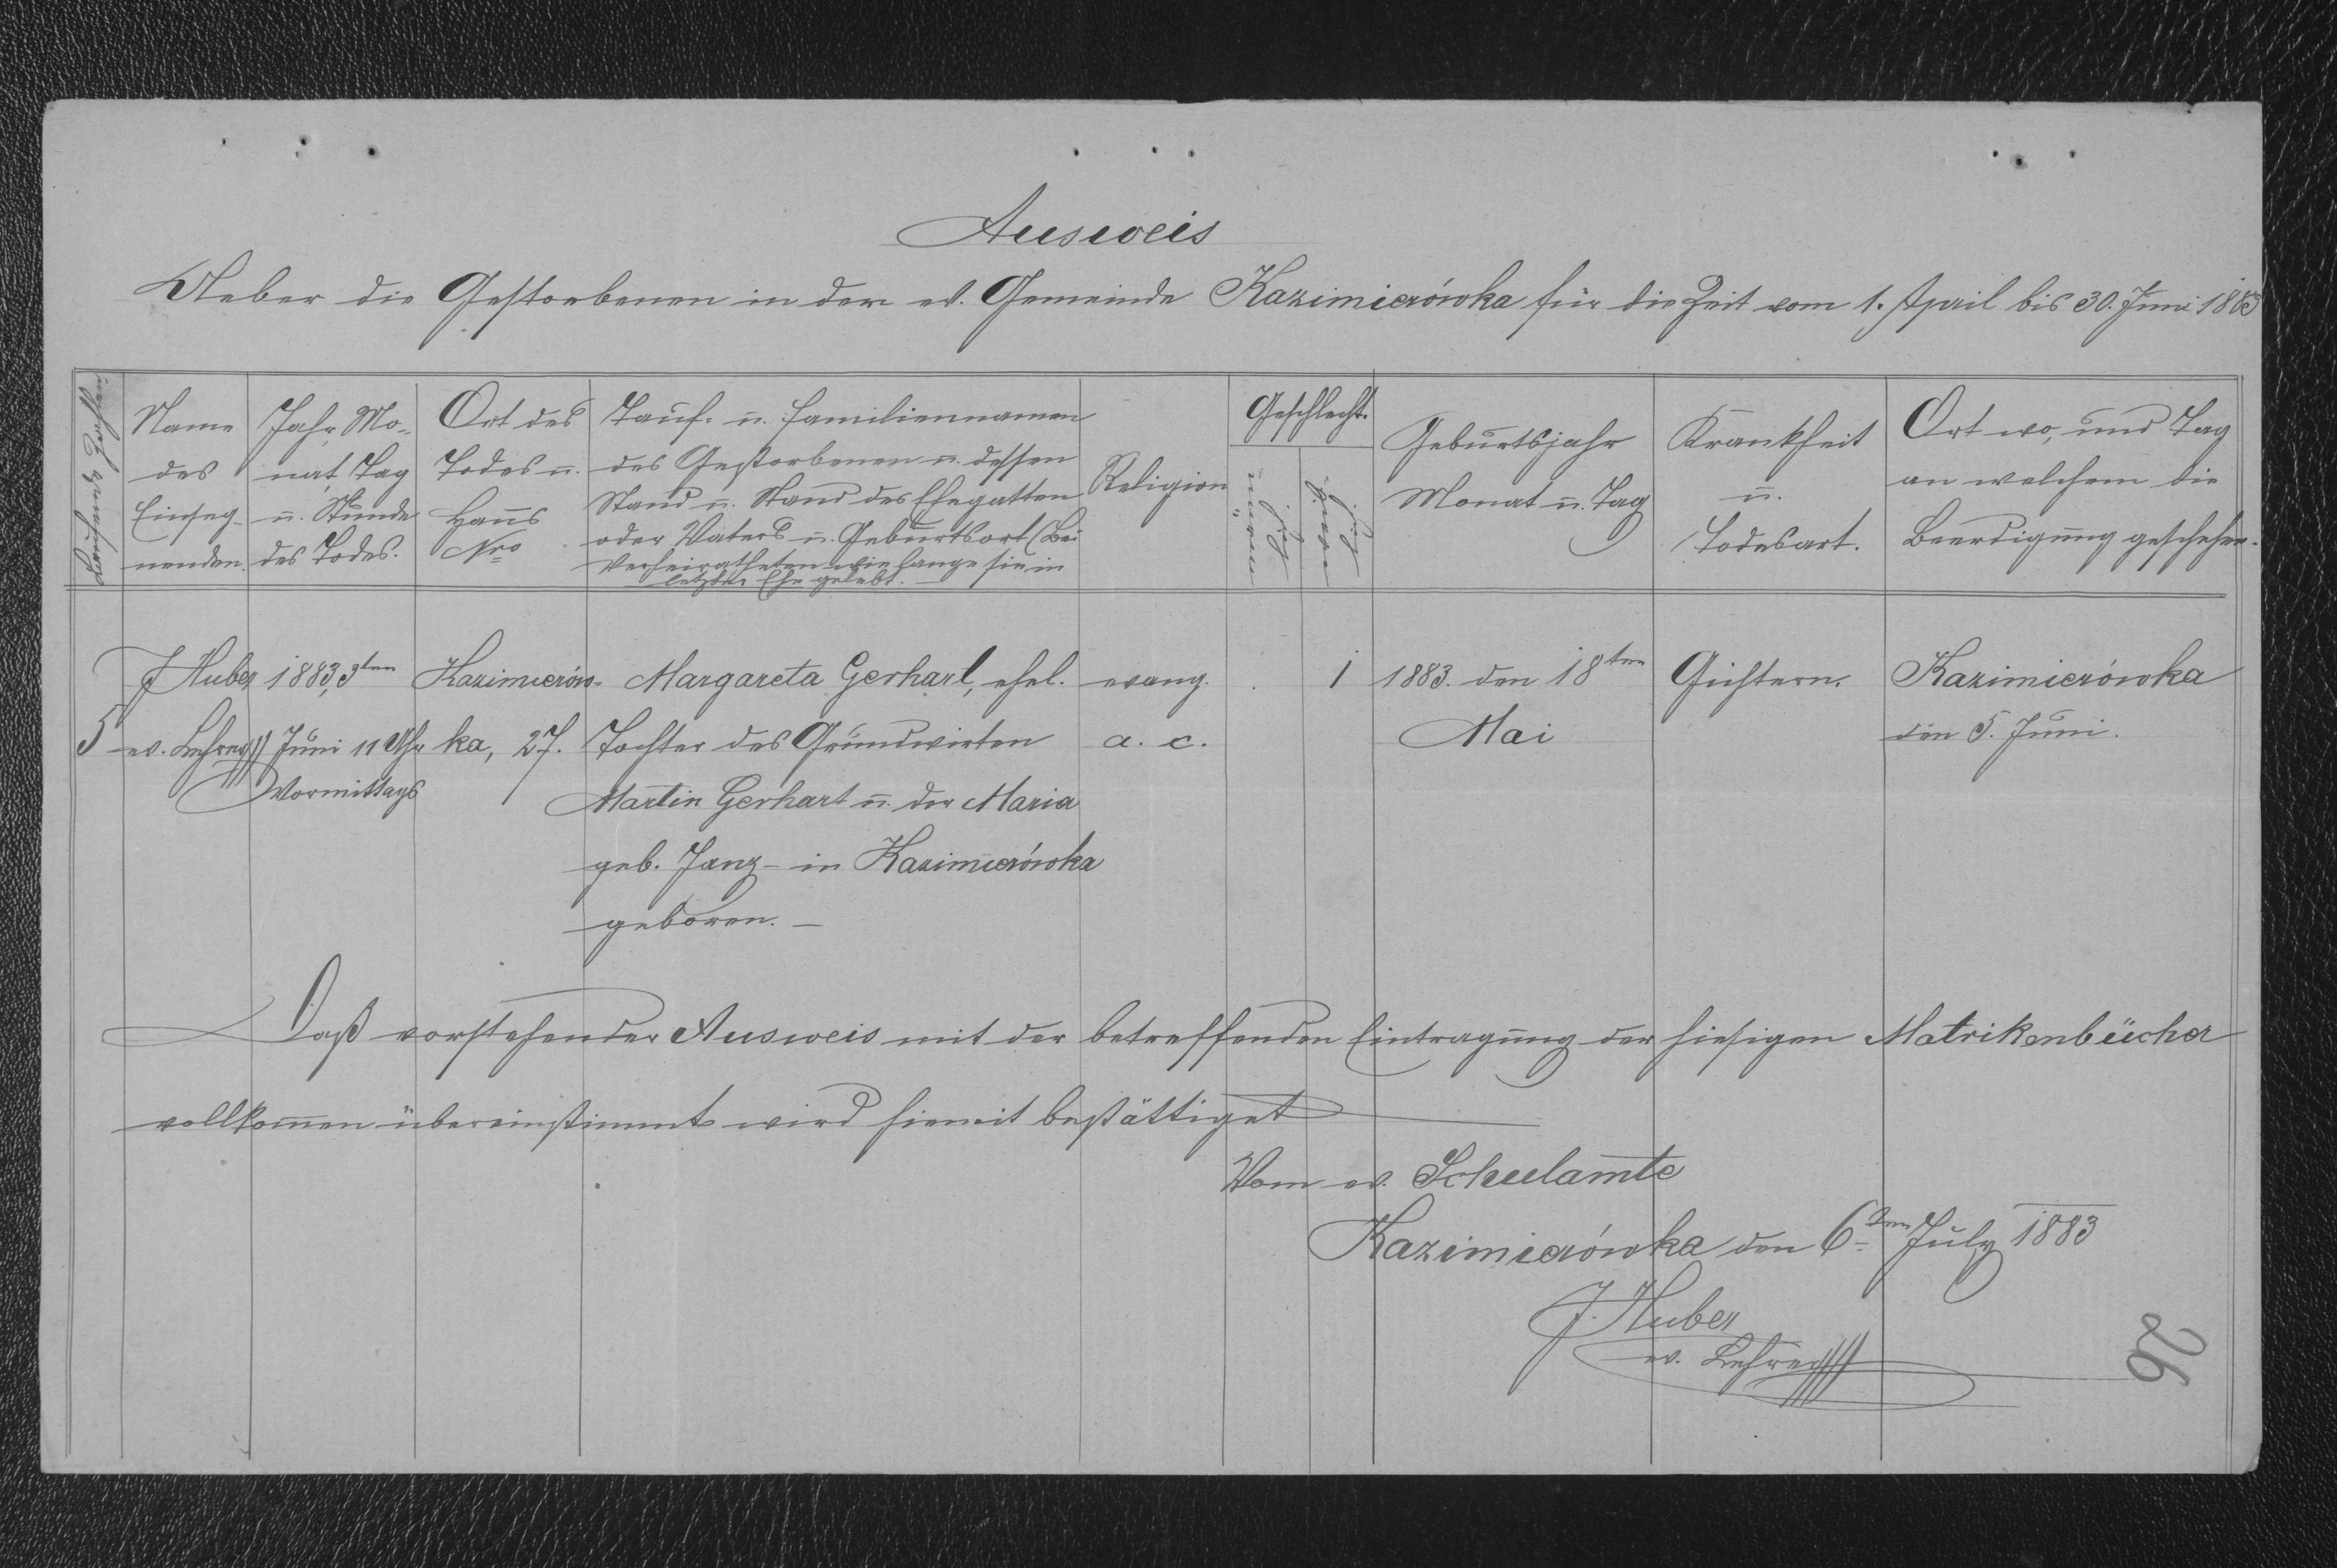 Ausweis
Ueber die Gestorbenen in der ev. Gemeinde Kazimierówka für die Zeit vom 1. April bis 30. Juni 1883
Name des Einseg-nenden.
Jahr, Mo-nat, Tag u. Stunde des Todes.
Ort des Todes u. Haus Nro
Tauf- u. Familiennamen
des Gestorbenen u. dessen
Stand u. Stand des Ehegatten
oder Vaters u. Geburtsort (Bei
Verheiratheten wie lange sie in
letzter Ehe gelebt.
Religion
Geschlecht.
männlich
weiblich
Geburtsjahr
Monat u. Tag
Krankheit
u.
Todesart.
Ort wo, und Tag
an welchem die
Beerdigung geschehen.
5
J Huber
ev. Lehrer
1883, 3ten
Juni 11 Uhr
Vormittags
Kazimierów-
ka, 27.
Margareta Gerhart, ehel.
Tochter des Grundwirten
Martin Gerhart u. der Maria
geb. Janz - in Kazimierówka
geboren. -
evang.
a. c.
1
1883. den 18ten
Mai
Gichtern.
Kazimierówka
den 5. Juni.
Daß vorstehender Ausweis mit der betreffenden Eintragung der hiesigen Matrikenbücher
vollkomen übereinstimmt wird hiemit bestättiget
Vom ev. Schulamte
Kazimierówka den 6ten July 1883
J. Huber
ev. Lehrer
26